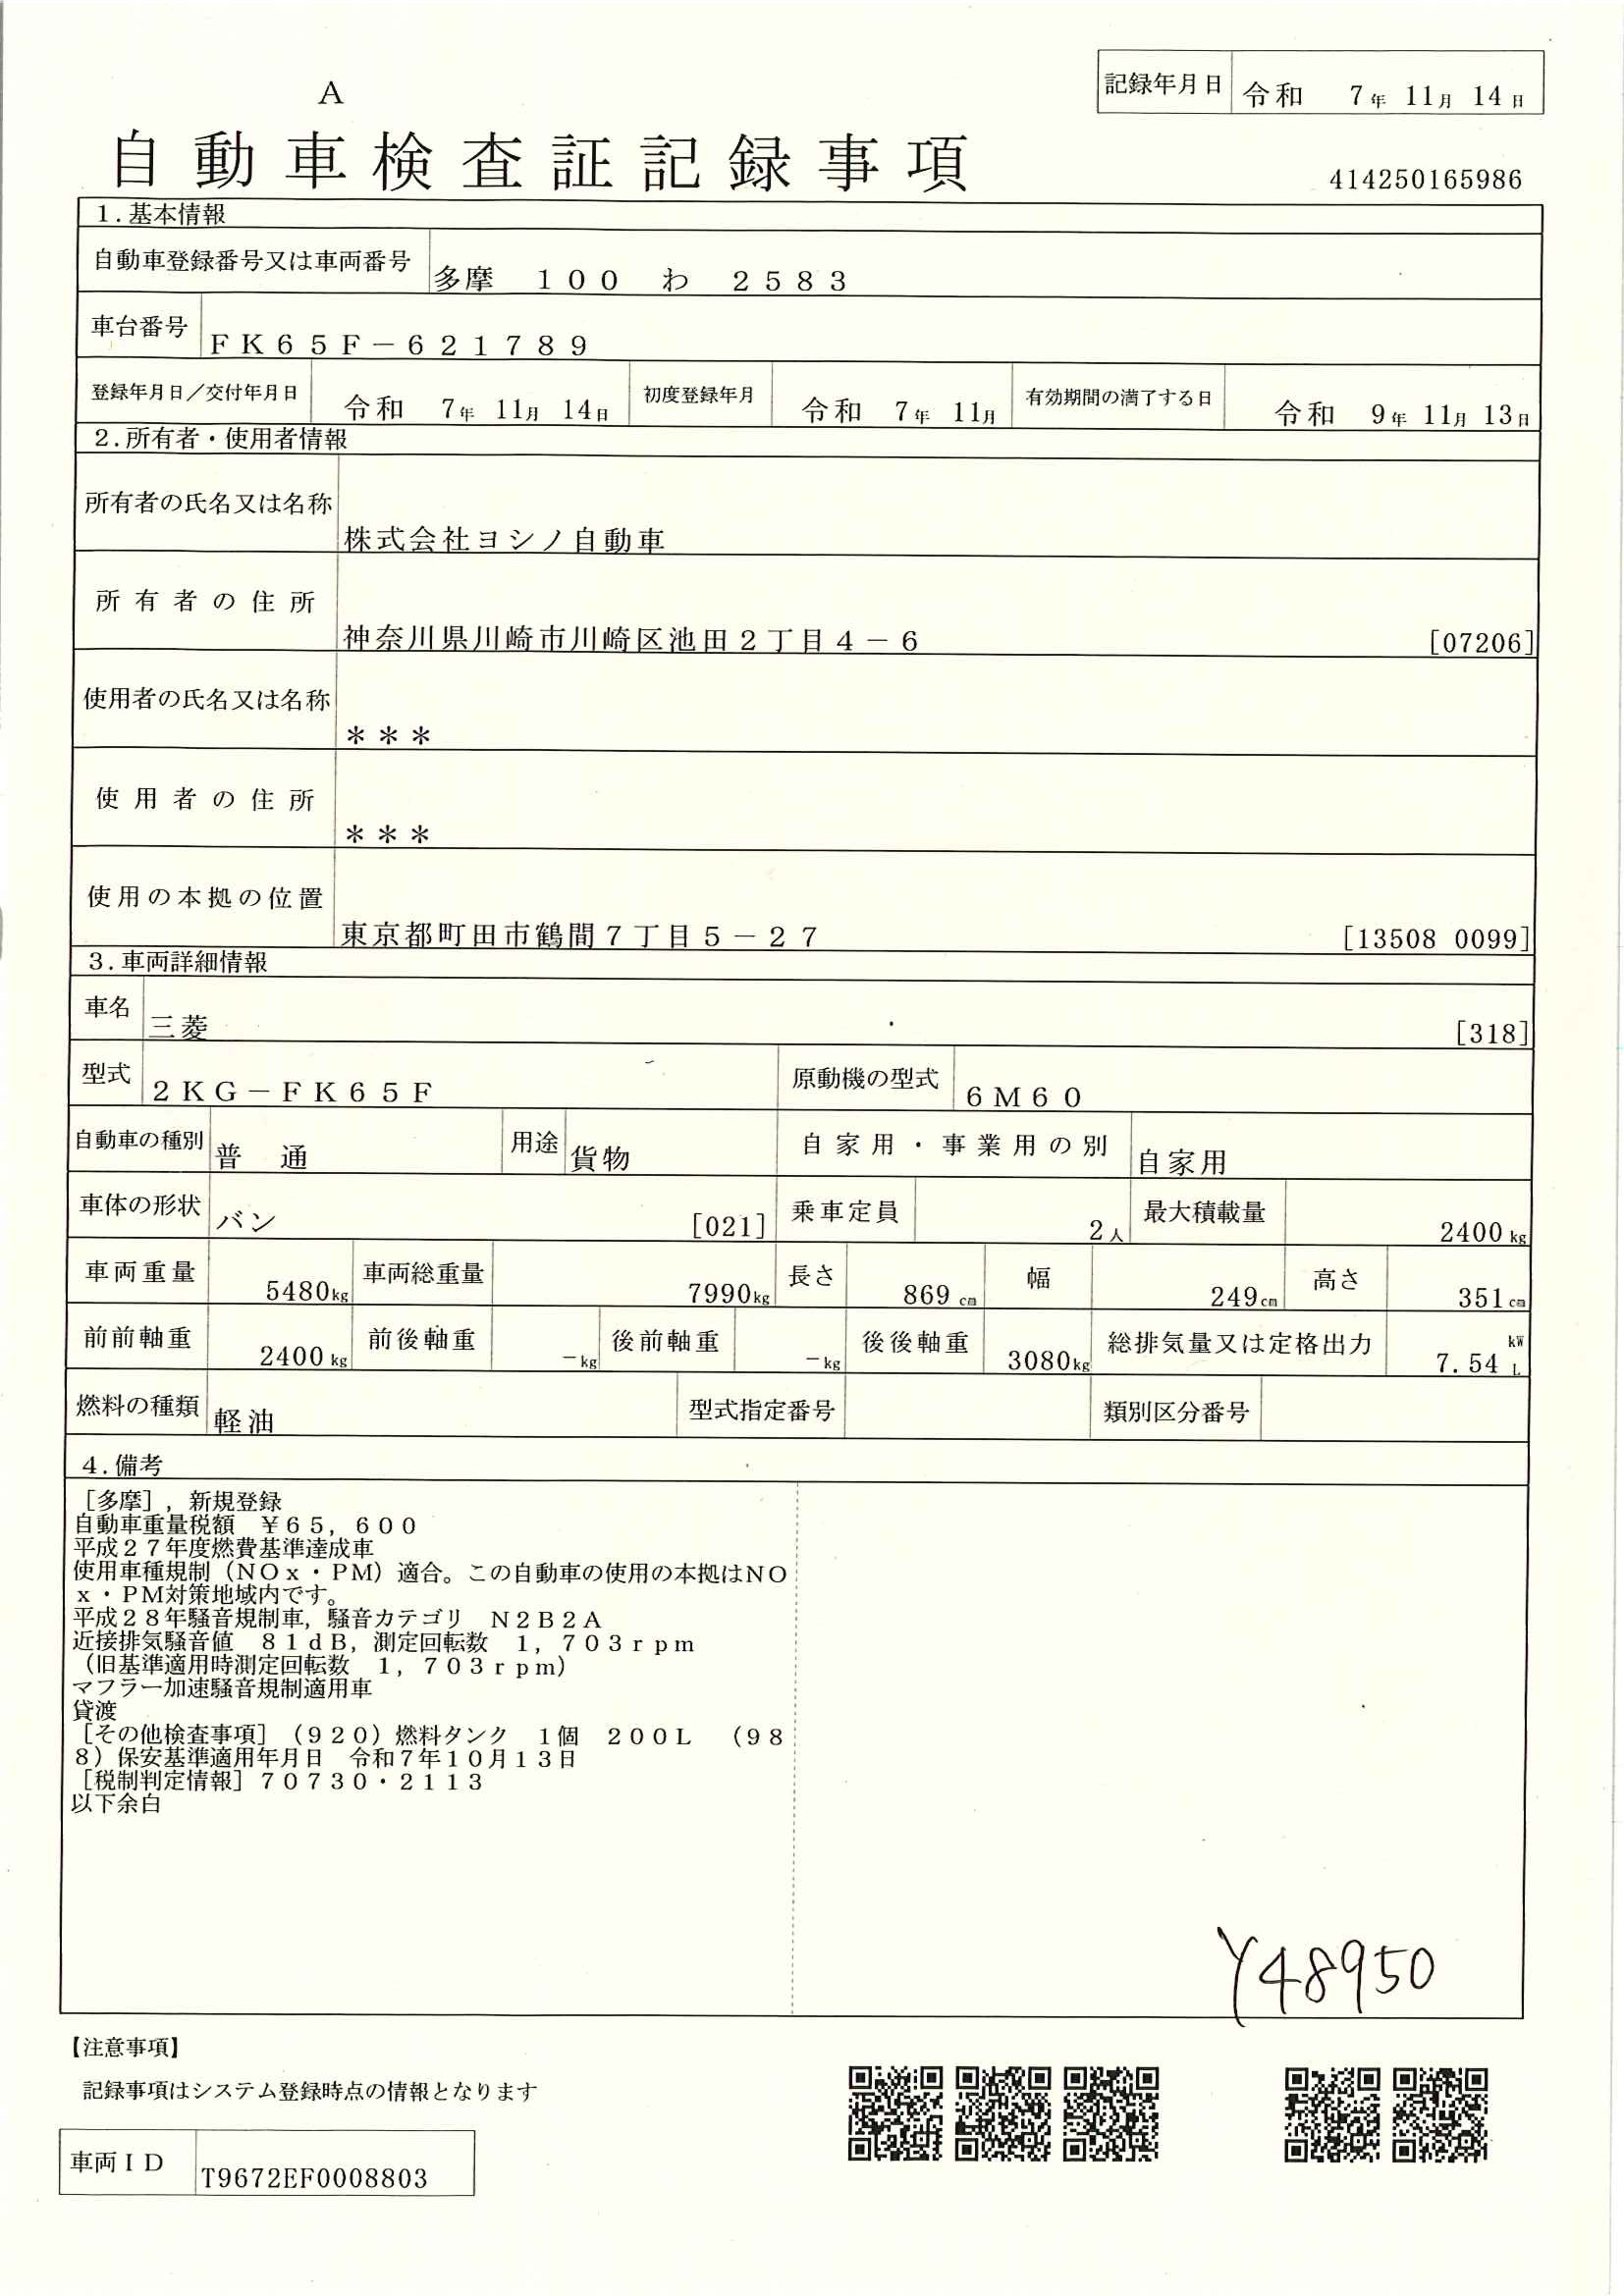 記録年月日 令和 7年 11月 14日
A
自動車検査証記録事項
414250165986
1.基本情報
自動車登録番号又は車両番号 多摩 １００ わ ２５８３
車台番号 ＦＫ６５Ｆ－６２１７８９
登録年月日／交付年月日 令和 7年 11月 14日 初度登録年月 令和 7年 11月 有効期間の満了する日 令和 9年 11月 13日
2.所有者・使用者情報
所有者の氏名又は名称 株式会社ヨシノ自動車
所有者の住所 神奈川県川崎市川崎区池田２丁目４－６ [07206]
使用者の氏名又は名称 ＊＊＊
使用者の住所 ＊＊＊
使用の本拠の位置 東京都町田市鶴間７丁目５－２７ [13508 0099]
3.車両詳細情報
車名 三菱 [318]
型式 ２ＫＧ－ＦＫ６５Ｆ 原動機の型式 ６Ｍ６０
自動車の種別 普 通 用途 貨物 自家用・事業用の別 自家用
車体の形状 バン [021] 乗車定員 2人 最大積載量 2400kg
車両重量 5480kg 車両総重量 7990kg 長さ 869cm 幅 249cm 高さ 351cm
前前軸重 2400kg 前後軸重 －kg 後前軸重 －kg 後後軸重 3080kg 総排気量又は定格出力 7.54 kW L
燃料の種類 軽油 型式指定番号 類別区分番号
4.備考
［多摩］，新規登録
自動車重量税額 ￥６５，６００
平成２７年度燃費基準達成車
使用車種規制（ＮＯｘ・ＰＭ）適合。この自動車の使用の本拠はＮＯ
ｘ・ＰＭ対策地域内です。
平成２８年騒音規制車，騒音カテゴリ Ｎ２Ｂ２Ａ
近接排気騒音値 ８１ｄＢ，測定回転数 １，７０３ｒｐｍ
（旧基準適用時測定回転数 １，７０３ｒｐｍ）
マフラー加速騒音規制適用車
貸渡
［その他検査事項］（９２０）燃料タンク １個 ２００Ｌ （９８
８）保安基準適用年月日 令和７年１０月１３日
［税制判定情報］７０７３０・２１１３
以下余白
Y48950
【注意事項】
記録事項はシステム登録時点の情報となります
車両ＩＤ T9672EF0008803